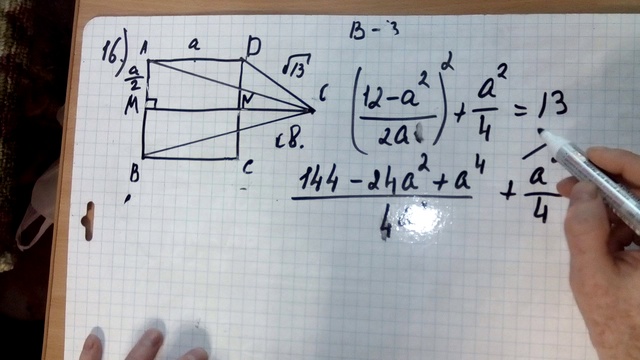 В-3
16)
A a D
a/2
√13
M N C
к8.
B C
((12-a²)/2a)² + a²/4 = 13
(144-24a²+a⁴)/4 + a/4